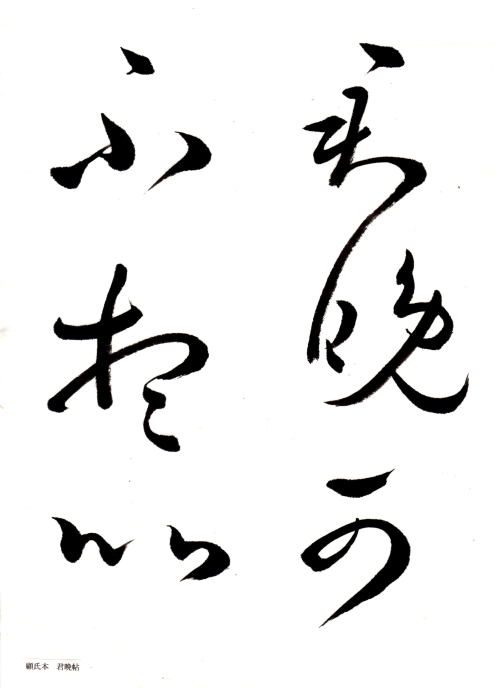 君晚可
不想比
顧氏本　君晚帖